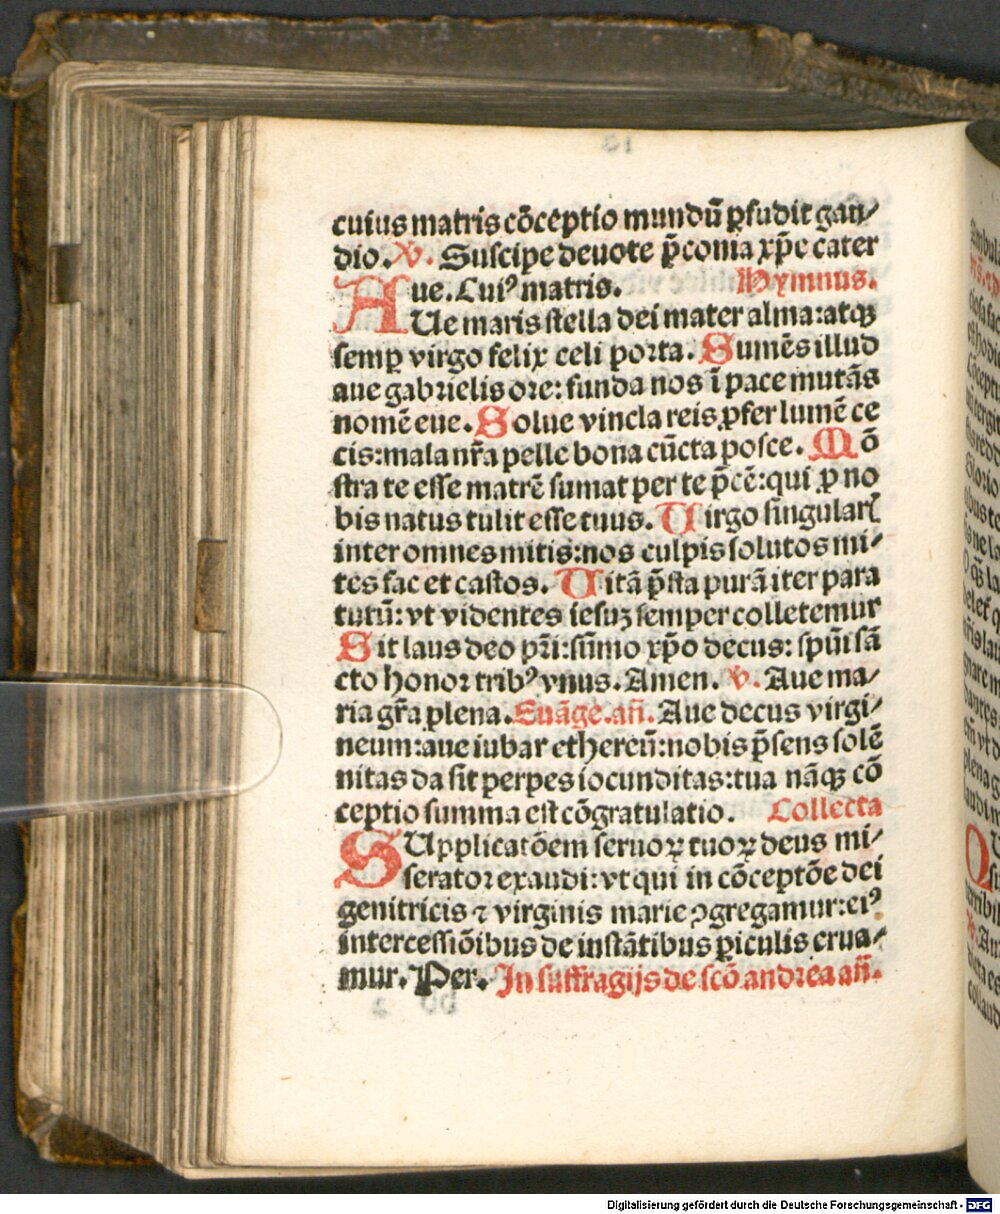 cuius matris cōceptio mundū ꝑfudit gau⸗
dio. V. Suscipe deuote p̄conia xp̄e cater
ue. Cuiꝰ matris. Hymnus.
AUe maris stella dei mater alma: atqꝫ
semꝑ virgo felix celi porta. Sumēs illud
aue gabrielis ore: funda nos ī pace mutās
nomē eue. Solue vincla reis ꝓfer lumē ce
cis: mala nr̄a pelle bona cūcta posce. Mō
stra te esse matrē sumat per te p̄cē: qui ꝓ no
bis natus tulit esse tuus. Uirgo singularī
inter omnes mitis: nos culpis solutos mi⸗
tes fac et castos. Uitā p̄sta purā iter para
tutū: vt videntes iesuꝫ semper colletemur
Sit laus deo pr̄i: sūmo xp̄o decus: spūi sā
cto honor tribꝰ vnus. Amen. V. Aue ma⸗
ria gr̄a plena. Euāge. añ. Aue decus virgi⸗
neum: aue iubar ethereū: nobis p̄sens solē
nitas da sit perpes iocunditas: tua nāqꝫ cō
ceptio summa est cōgratulatio. Collecta
SUpplicatōem seruoꝝ tuoꝝ deus mi⸗
serator exaudi: vt qui in cōceptōe dei
genitricis ⁊ virginis marie ꝯgregamur: eiꝰ
intercessiōibus de instātibus ꝑiculis erua⸗
mur. Per. In suffragijs de scō andrea añ.